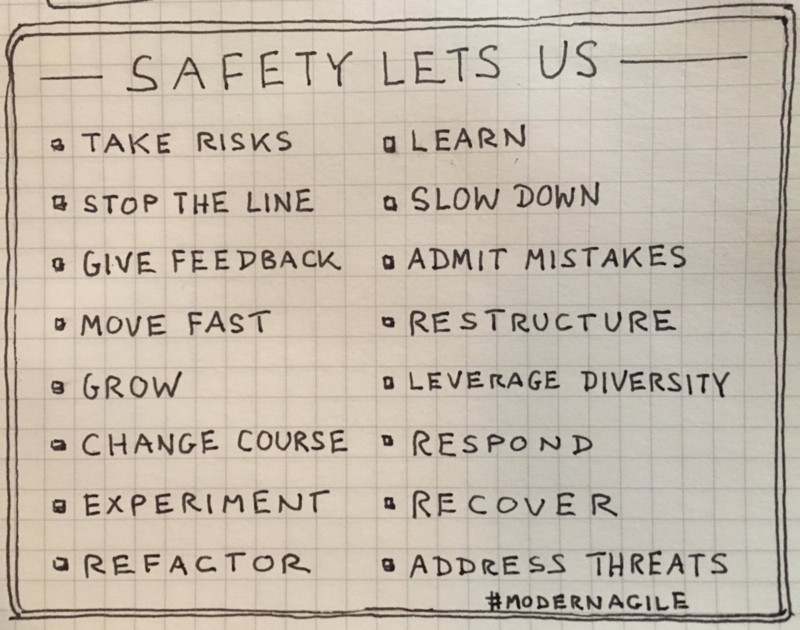 SAFETY LETS US
TAKE RISKS
STOP THE LINE
GIVE FEEDBACK
MOVE FAST
GROW
CHANGE COURSE
EXPERIMENT
REFACTOR
LEARN
SLOW DOWN
ADMIT MISTAKES
RESTRUCTURE
LEVERAGE DIVERSITY
RESPOND
RECOVER
ADDRESS THREATS
#MODERNAGILE